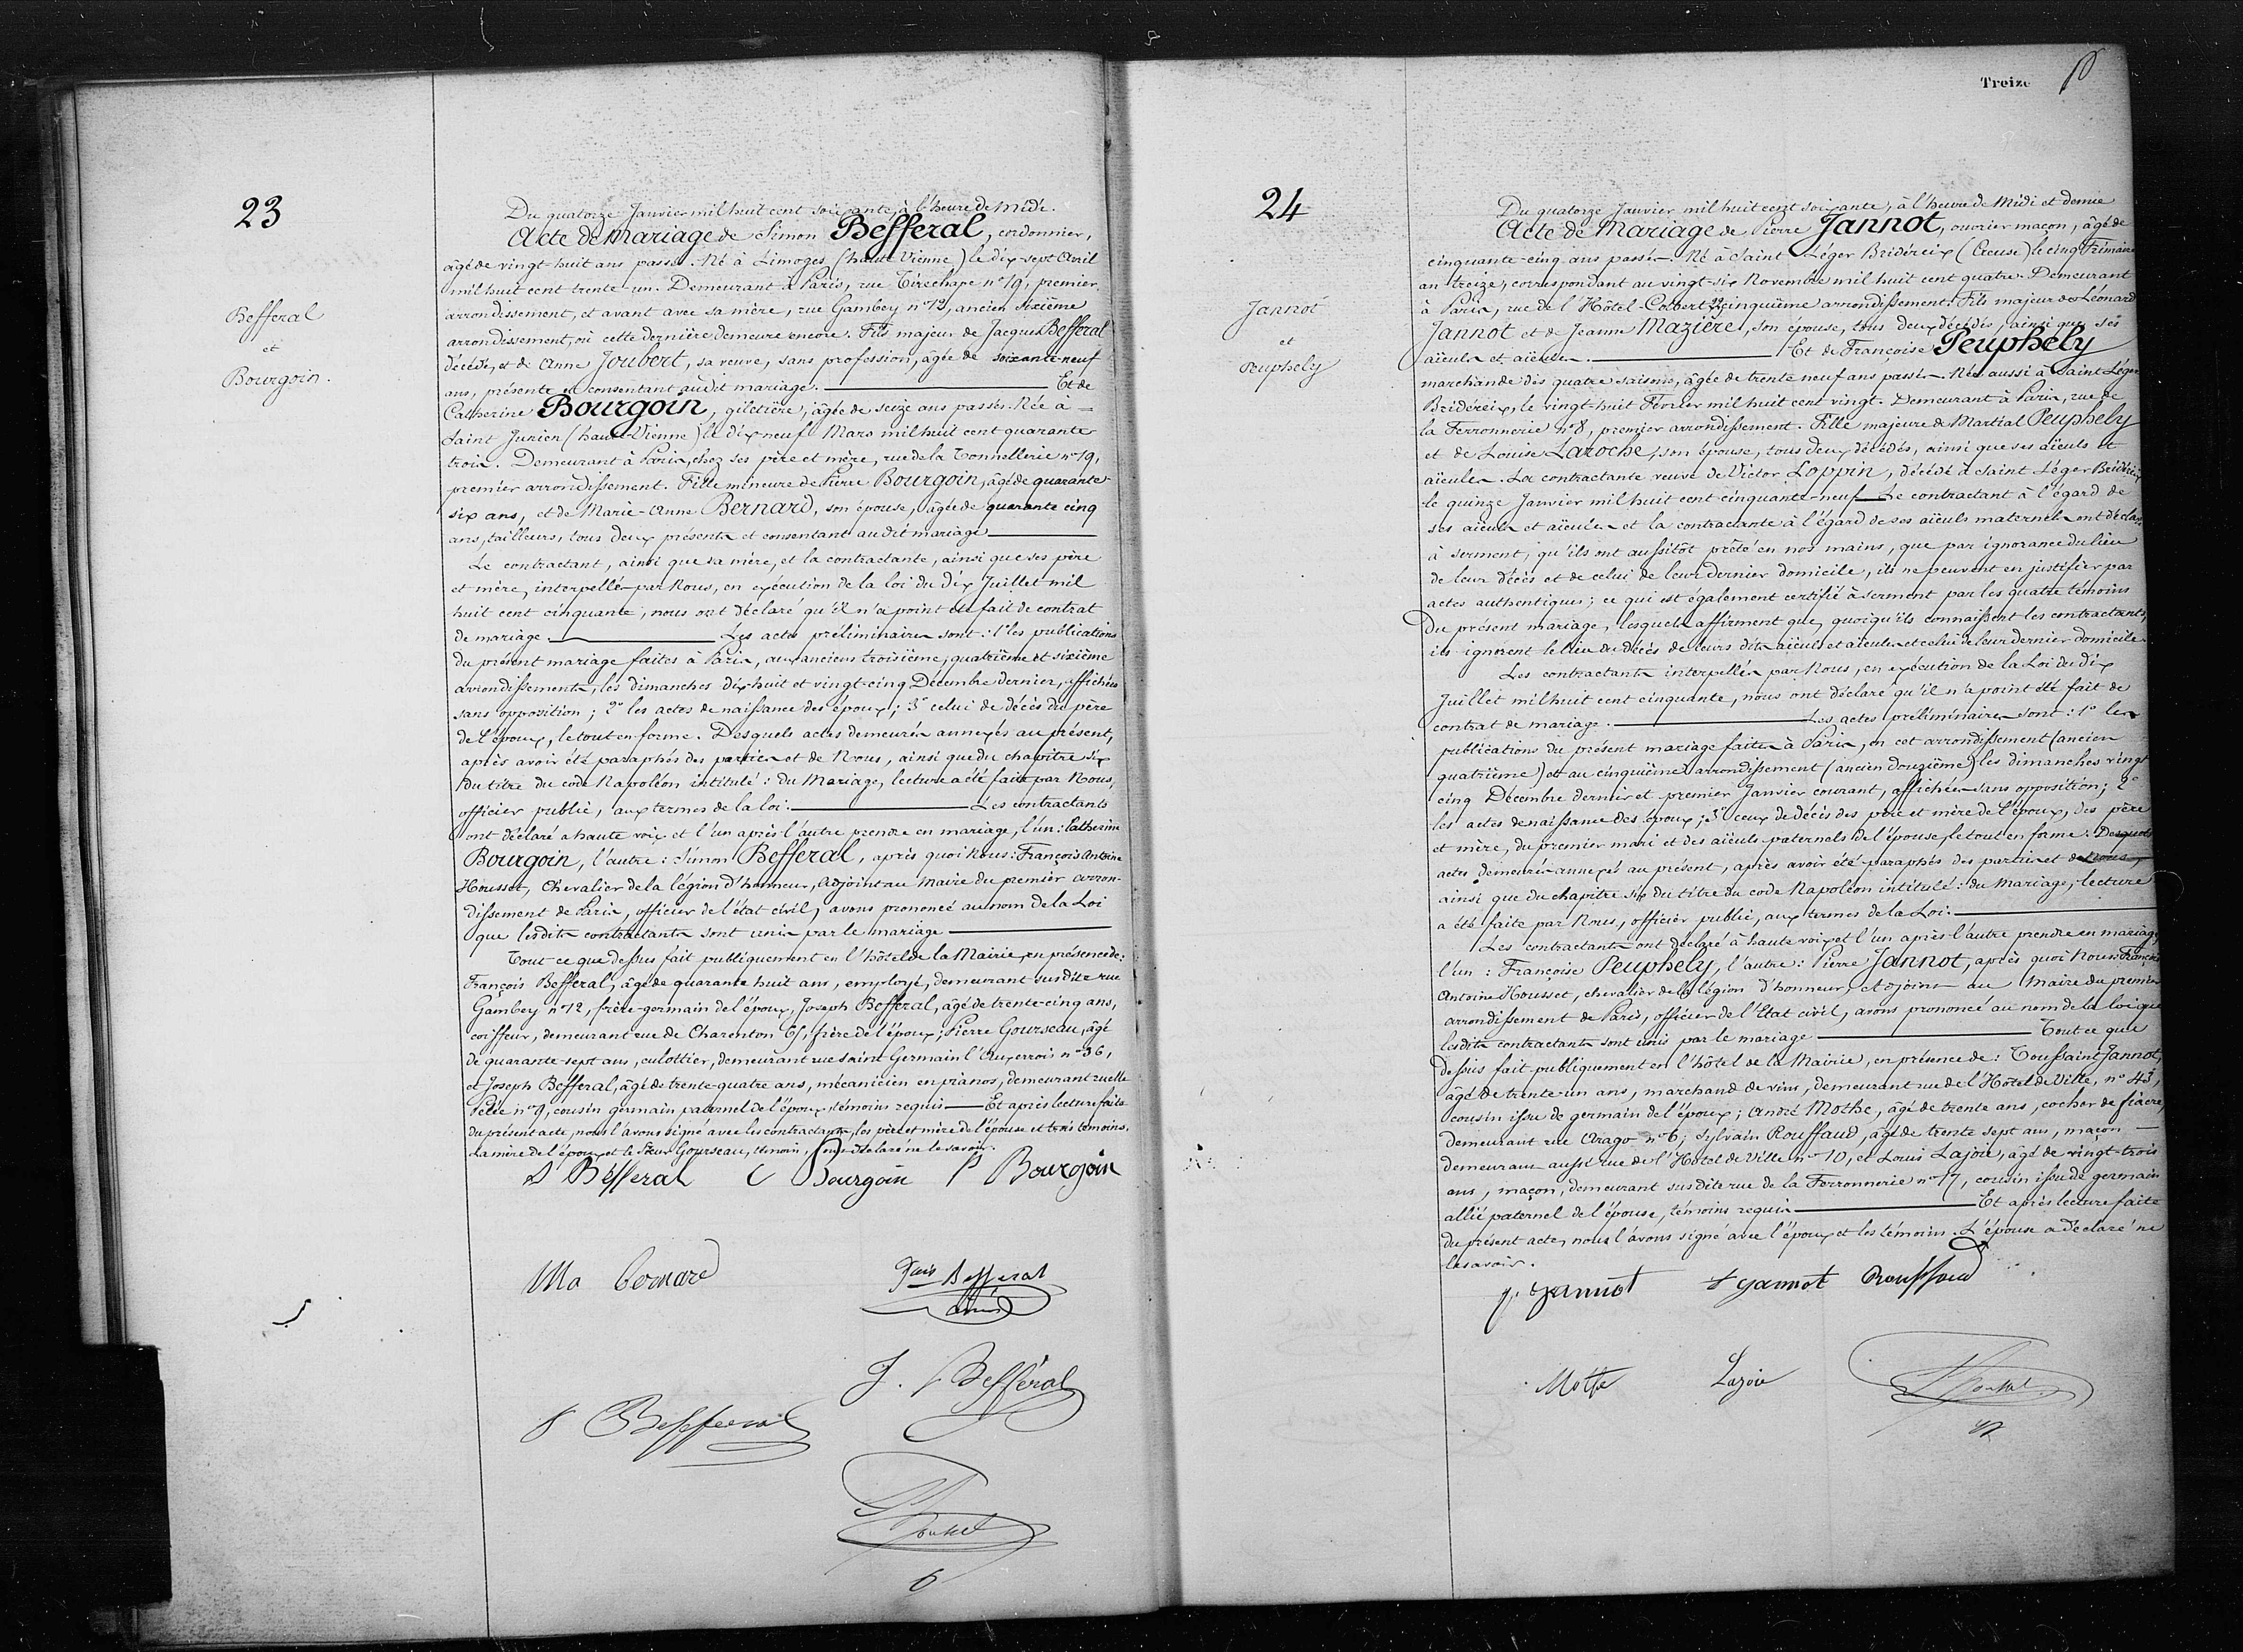 23
Befferal
et
Bourgoin.
Du quatorze Janvier mil huit cent soixante, à l'heure de Midi.
Acte de Mariage de Simon Befferal, cordonnier,
âgé de vingt-huit ans passés. Né à Limoges (haute Vienne) le dix sept Avril
mil huit cent trente-un. Demeurant à Paris, rue Tirechape n° 19, premier
arrondissement, et avant avec sa mère, rue Gambey n° 12, ancien sixième
arrondissement, où cette dernière demeure encore. Fils majeur de Jacques Befferal
décédé, et de Anne Joubert, sa veuve, sans profession, âgée de soixante-neuf
ans, présente et consentant audit mariage. Et de
Catherine Bourgoin, giletière, âgée de seize ans passés. Née à
Saint Junien (haute-Vienne) le dix-neuf Mars mil huit cent quarante
trois. Demeurant à Paris, chez ses père et mère, rue de la Tonnellerie n° 19,
premier arrondissement. Fille mineure de Pierre Bourgoin, âgé de quarante
six ans, et de Marie-Anne Bernard, son épouse, âgée de quarante cinq
ans, tailleurs, tous deux présents et consentant audit mariage
Le contractant, ainsi que sa mère, et la contractante, ainsi que ses père
et mère, interpellés par Nous, en exécution de la loi du dix Juillet mil
huit cent cinquante, nous ont déclaré qu'il n'a point été fait de contrat
de mariage. Les actes préliminaires sont : 1° les publications
du présent mariage faites à Paris, aux anciens troisième, quatrième et sixième
arrondissements, les dimanches dix-huit et vingt-cinq Décembre dernier, affichées
sans opposition ; 2° les actes de naissance des époux ; 3° celui de décès du père
de l'époux, le tout en forme. Desquels actes demeurés annexés au présent,
après avoir été paraphés des parties et de Nous, ainsi que du chapitre six
du titre du code Napoléon intitulé : du Mariage, lecture a été faite par Nous,
officier public, aux termes de la loi. Les contractants
ont déclaré à haute voix et l'un après l'autre prendre en mariage, l'un : Catherine
Bourgoin, l'autre : Simon Befferal, après quoi Nous : François Antoine
Housset, Chevalier de la légion d'honneur, Adjoint au Maire du premier arron-
dissement de Paris, officier de l'état civil, avons prononcé au nom de la Loi
que lesdits contractants sont unis par le mariage
Tout ce que dessus fait publiquement en l'hôtel de la Mairie, en présence de :
François Befferal, âgé de quarante huit ans, employé, demeurant susdite rue
Gambey n° 12, frère-germain de l'époux, Joseph Befferal, âgé de trente-cinq ans,
coiffeur, demeurant rue de Charenton 65, frère de l'époux ; Pierre Gourseau, âgé
de quarante-sept ans, culottier, demeurant rue Saint Germain l'Auxerrois n° 36,
et Joseph Befferal, âgé de trente-quatre ans, mécanicien en pianos, demeurant ruelle
Pelée n° 9, cousin germain paternel de l'époux, témoins requis Et après lecture faite
du présent acte, nous l'avons signé avec les contractants, les père et mère de l'épouse et trois témoins.
La mère de l'époux et le Sieur Gourseau, témoin, ont déclaré ne le savoir.
S Befferal C Bourgoin P Bourgoin
Ma bernard
Fçois Befferal
ainé
J. Befferal
J Befferal
Housset
Treize
24
Jannot
et
Peuphely
Du quatorze Janvier mil huit cent soixante, à l'heure de Midi et demie
Acte de Mariage de Pierre Jannot, ouvrier maçon, âgé de
cinquante-cinq ans passés. Né à Saint Léger Bridéreix (Creuse) le cinq Frimaire
an treize, correspondant au vingt-six Novembre mil huit cent quatre. Demeurant
à Paris, rue de l'Hôtel-Colbert cinquième arrondissement. Fils majeur de Léonard
Jannot et de Jeanne Mazière, son épouse, tous deux décédés, ainsi que ses
aïeuls et aïeules. Et de Françoise Peuphely
marchande des quatre saisons, âgée de trente neuf ans passés. Née aussi à Saint Léger
Bridéreix, le vingt-huit Février mil huit cent vingt. Demeurant à Paris, rue de
la Ferronnerie n° 8, premier arrondissement. Fille majeure de Martial Peuphely
et de Louise Laroche, son épouse, tous deux décédés, ainsi que ses aïeuls et
aïeules. La contractante veuve de Victor Loppin, décédé à Saint Léger Bridéreix
le quinze Janvier mil huit cent cinquante-neuf Le contractant à l'égard de
ses aïeuls et aïeules et la contractante à l'égard de ses aïeuls maternels ont déclaré
à serment, qu'ils ont aussitôt prêté en nos mains, que par ignorance du lieu
de leur décès et de celui de leur dernier domicile, ils ne peuvent en justifier par
actes authentiques ; ce qui est également certifié à serment par les quatre témoins
du présent mariage, lesquels affirment que, quoiqu'ils connaissent les contractants,
ils ignorent le lieu du décès de leurs dits aïeuls et aïeules et celui de leur dernier domicile
Les contractants interpellés par Nous, en exécution de la Loi du dix
Juillet mil huit cent cinquante, nous ont déclaré qu'il n'a point été fait de
contrat de mariage. Les actes préliminaires sont : 1° les
publications du présent mariage faites à Paris, en cet arrondissement (ancien
quatrième) et au cinquième arrondissement (ancien douzième) les dimanches vingt
cinq Décembre dernier et premier Janvier courant, affichées sans opposition ; 2°
les actes de naissance des époux ; 3° ceux de décès des père et mère de l'époux, des père
et mère, du premier mari et des aïeuls paternels de l'épouse, le tout en forme. Desquels
actes demeurés annexés au présent, après avoir été paraphés des parties et de Nous
ainsi que du chapitre six du titre du code Napoléon intitulé : du Mariage, lecture
a été faite par Nous, officier public, aux termes de la Loi.
Les contractants ont déclaré à haute voix et l'un après l'autre prendre en mariage,
l'un : Françoise Peuphely, l'autre : Pierre Jannot, après quoi Nous : François
Antoine Housset, chevalier de la légion d'honneur, Adjoint au Maire du premier
arrondissement de Paris, officier de l'Etat civil, avons prononcé au nom de la loi que
lesdits contractants sont unis par le mariage Tout ce que
dessus fait publiquement en l'hôtel de la Mairie, en présence de : Toussaint Jannot,
âgé de trente-un ans, marchand de vins, demeurant rue de l'Hôtel de Ville, n° 43,
cousin issu de germain de l'époux ; André Mothe, âgé de trente ans, cocher de fiacre,
demeurant rue Arago n° 6 ; Sylvain Rouffaud, âgé de trente sept ans, maçon
demeurant aussi rue de l'Hôtel de Ville n° 10, et Louis Lajoie, âgé de vingt-trois
ans, maçon, demeurant susdite rue de la Ferronnerie n° 17, cousin issu de germain
allié paternel de l'épouse, témoins requis Et après lecture faite
du présent acte, nous l'avons signé avec l'époux et les témoins. L'épouse a déclaré ne
le savoir.
P. Jannot T Jannot Rouffaud
Mothe Lajoie Housset